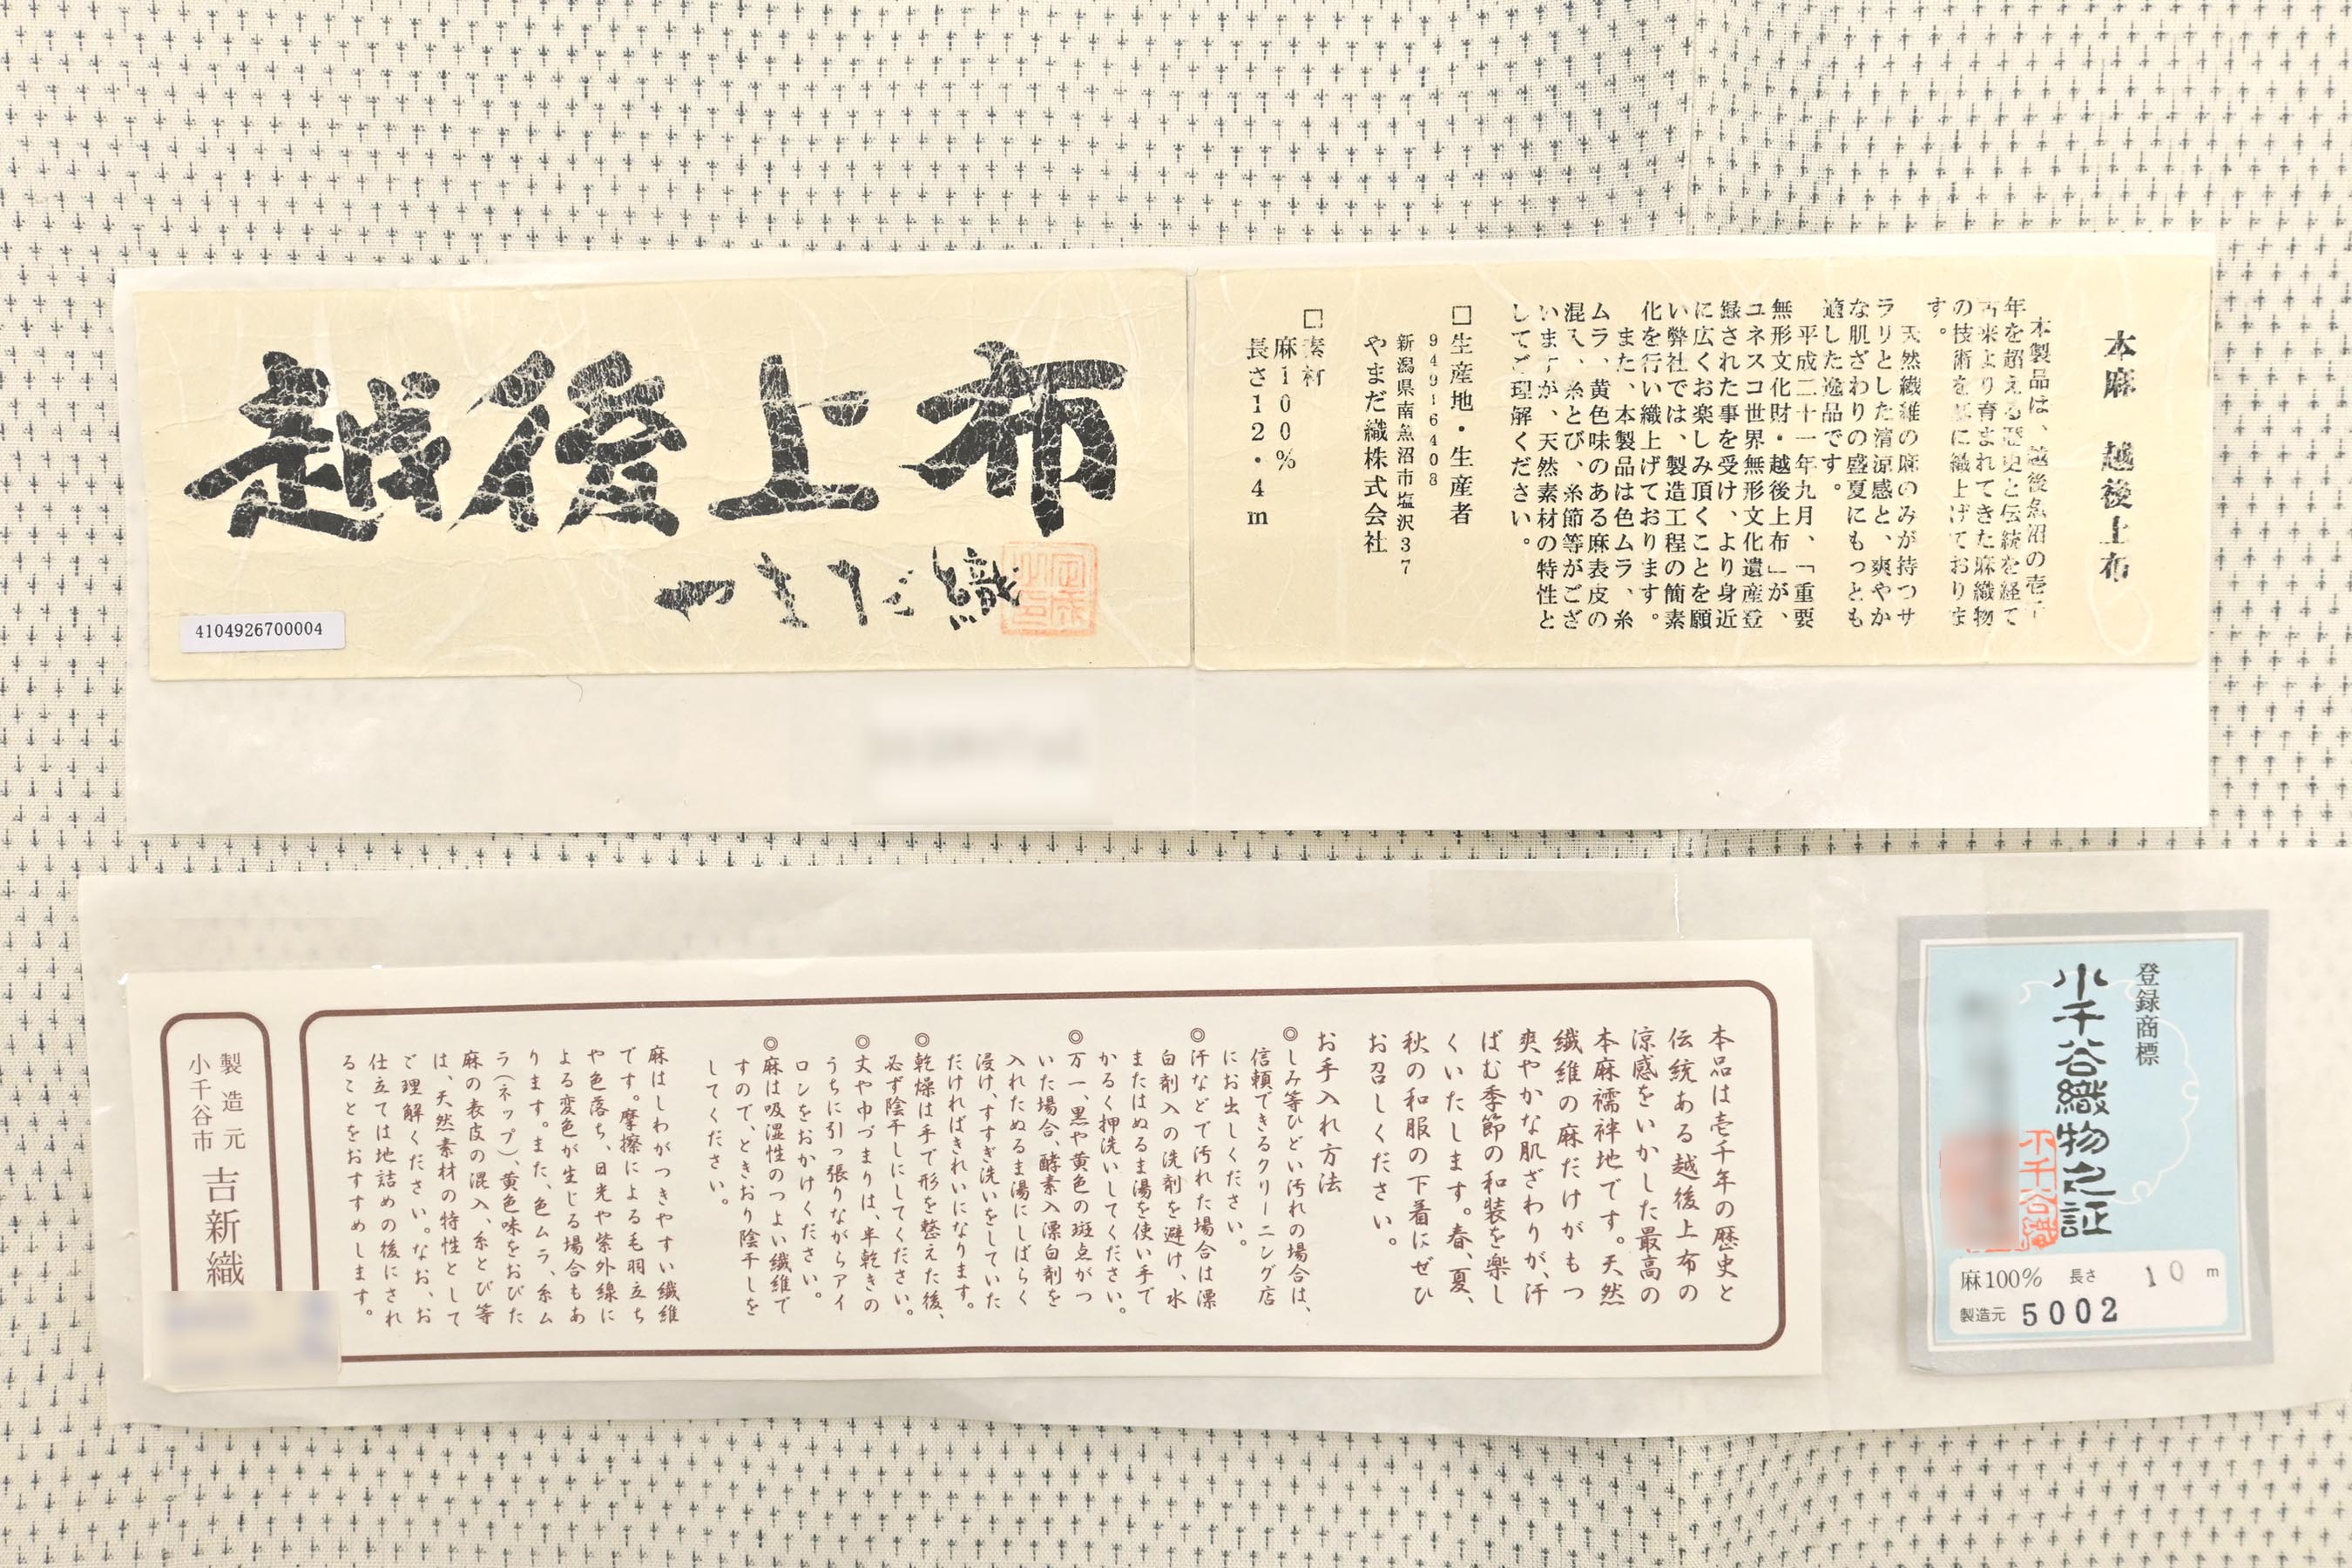 越後上布
やまだ織
4104926700004
本麻 越後上布
本製品は、越後魚沼の壱千
年を超える歴史と伝統を経て
古来より育まれてきた麻織物
の技術を基に織上げておりま
す。
天然繊維の麻のみが持つサ
ラリとした清涼感と、爽やか
な肌ざわりの盛夏にもっとも
適した逸品です。
平成二十一年九月、「重要
無形文化財・越後上布」が、
ユネスコ世界無形文化遺産登
録された事を受け、より身近
に広くお楽しみ頂くことを願
い弊社では、製造工程の簡素
化を行い織上げております。
また、本製品は色ムラ、糸
ムラ、黄色味のある麻表皮の
混入、糸とび、糸節等がござ
いますが、天然素材の特性と
してご理解ください。
□生産地・生産者
949-6408
新潟県南魚沼市塩沢37
やまだ織株式会社
□素材
麻100%
長さ12・4m
本品は壱千年の歴史と
伝統ある越後上布の
涼感をいかした最高の
本麻襦袢地です。天然
繊維の麻だけがもつ
爽やかな肌ざわりが、汗
ばむ季節の和装を楽し
くいたします。春、夏、
秋の和服の下着にぜひ
お召しください。
お手入れ方法
◎しみ等ひどい汚れの場合は、
信頼できるクリーニング店
にお出しください。
◎汗などで汚れた場合は漂
白剤入の洗剤を避け、水
またはぬるま湯を使い手で
かるく押洗いしてください。
◎万一、黒や黄色の斑点がつ
いた場合、酵素入漂白剤を
入れたぬるま湯にしばらく
浸け、すすぎ洗いをしていた
だければきれいになります。
◎乾燥は手で形を整えた後、
必ず陰干しにしてください。
◎丈や巾づまりは、半乾きの
うちに引っ張りながらアイ
ロンをおかけください。
◎麻は吸湿性のつよい繊維で
すので、ときおり陰干しを
してください。
麻はしわがつきやすい繊維
です。摩擦による毛羽立ち
や色落ち、日光や紫外線に
よる変色が生じる場合もあ
ります。また、色ムラ、糸ム
ラ(ネップ)、黄色味をおびた
麻の表皮の混入、糸とび等
は、天然素材の特性として
ご理解ください。なお、お
仕立ては地詰めの後にされ
ることをおすすめします。
製造元
小千谷市 吉新織
登録商標
小千谷織物之証
麻100% 長さ 10 m
製造元 5002